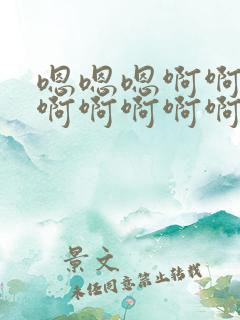 嗯嗯嗯啊啊
啊啊啊啊啊
景文
未经同意禁止转载